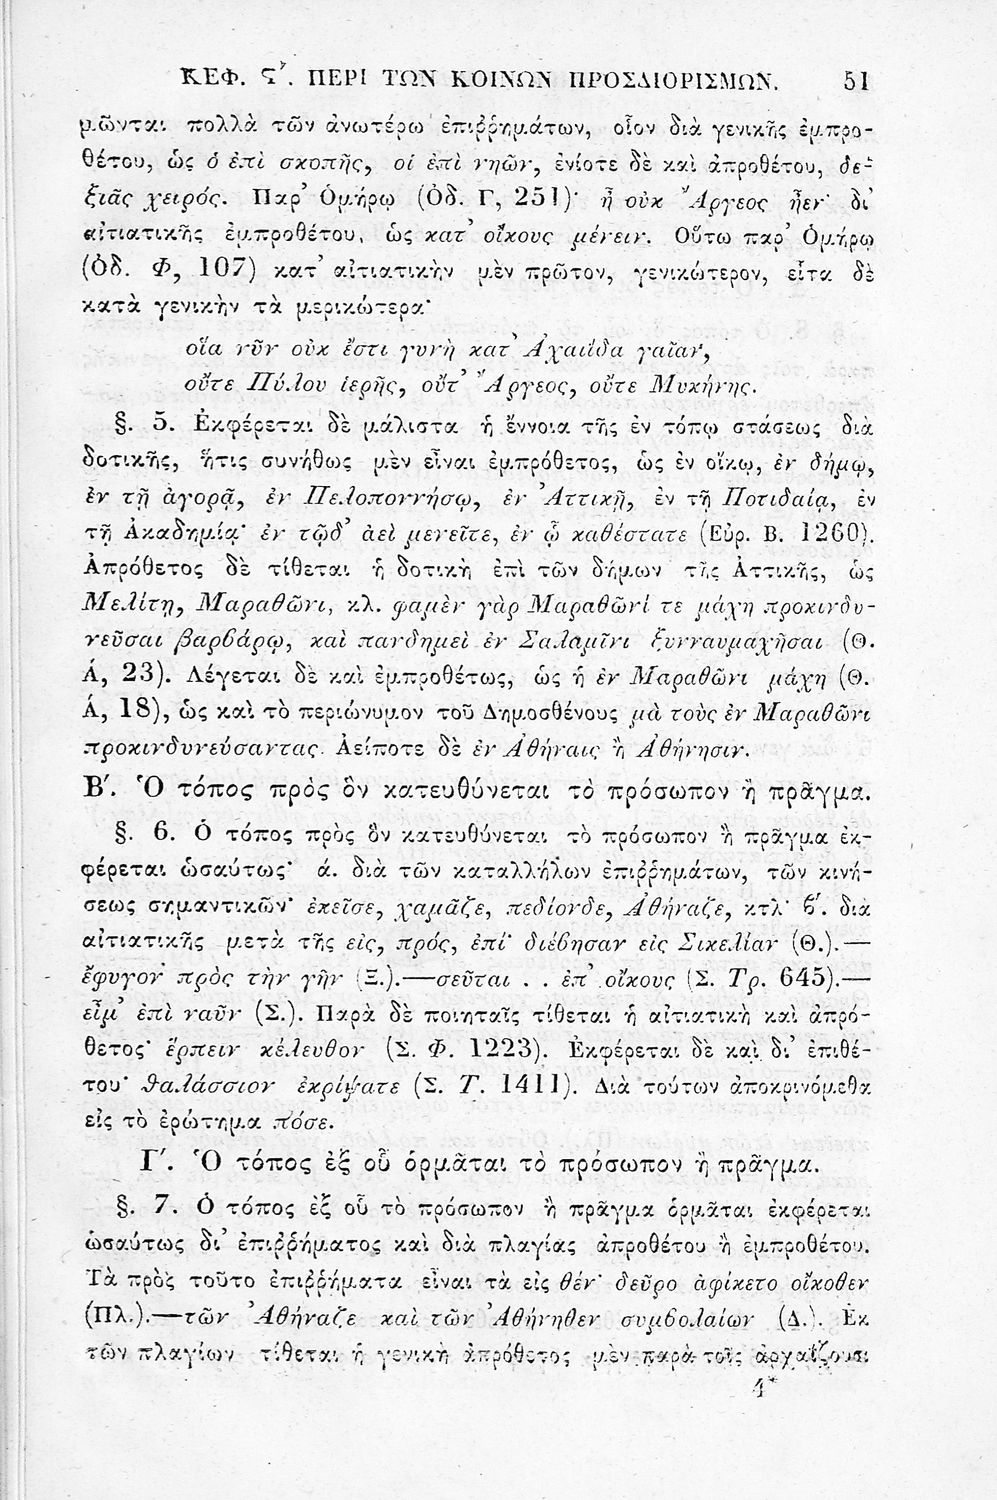 ΚΕΦ. Ϛʹ. ΠΕΡΙ ΤΩΝ ΚΟΙΝΩΝ ΠΡΟΣΔΙΟΡΙΣΜΩΝ. 51
μῶνται πολλὰ τῶν ἀνωτέρω ἐπιῤῥημάτων, οἷον διὰ γενικῆς ἐμπρο-
θέτου, ὡς ὁ ἐπὶ σκοπῆς, οἱ ἐπὶ νηῶν, ἐνίοτε δὲ καὶ ἀπροθέτου, δε-
ξιᾶς χειρός. Παρ᾽ Ὁμήρῳ (Ὀδ. Γ, 251)· ἦ οὐκ Ἄργεος ἦεν· δι᾽
αἰτιατικῆς ἐμπροθέτου, ὡς κατ᾽ οἴκους μένειν. Οὕτω παρ᾽ Ὁμήρῳ
(Ὀδ. Φ, 107) κατ᾽ αἰτιατικὴν μὲν πρῶτον, γενικώτερον, εἶτα δὲ
κατὰ γενικὴν τὰ μερικώτερα·
οἵα νῦν οὐκ ἔστι γυνὴ κατ᾽ Ἀχαιΐδα γαῖαν,
οὔτε Πύλου ἱερῆς, οὔτ᾽ Ἄργεος, οὔτε Μυκήνης.
§. 5. Ἐκφέρεται δὲ μάλιστα ἡ ἔννοια τῆς ἐν τόπῳ στάσεως διὰ
δοτικῆς, ἥτις συνήθως μὲν εἶναι ἐμπρόθετος, ὡς ἐν οἴκῳ, ἐν δήμῳ,
ἐν τῇ ἀγορᾷ, ἐν Πελοποννήσῳ, ἐν Ἀττικῇ, ἐν τῇ Ποτιδαίᾳ, ἐν
τῇ Ἀκαδημίᾳ· ἐν τῷδ᾽ ἀεὶ μενεῖτε, ἐν ᾧ καθέστατε (Εὐρ. Β. 1260).
Ἀπρόθετος δὲ τίθεται ἡ δοτικὴ ἐπὶ τῶν δήμων τῆς Ἀττικῆς, ὡς
Μελίτῃ, Μαραθῶνι, κλ. φαμὲν γὰρ Μαραθῶνί τε μάχῃ προκινδυ-
νεῦσαι βαρβάρῳ, καὶ πανδημεὶ ἐν Σαλαμῖνι ξυνναυμαχῆσαι (Θ.
Ά, 23). Λέγεται δὲ καὶ ἐμπροθέτως, ὡς ἡ ἐν Μαραθῶνι μάχη (Θ.
Ά, 18), ὡς καὶ τὸ περιώνυμον τοῦ Δημοσθένους μὰ τοὺς ἐν Μαραθῶνι
προκινδυνεύσαντας. Ἀείποτε δὲ ἐν Ἀθήναις ἢ Ἀθήνησιν.
Βʹ. Ὁ τόπος πρὸς ὃν κατευθύνεται τὸ πρόσωπον ἢ πρᾶγμα.
§. 6. Ὁ τόπος πρὸς ὃν κατευθύνεται τὸ πρόσωπον ἢ πρᾶγμα ἐκ-
φέρεται ὡσαύτως· ά. διὰ τῶν καταλλήλων ἐπιῤῥημάτων, τῶν κινή-
σεως σημαντικῶν· ἐκεῖσε, χαμᾶζε, πεδίονδε, Ἀθήναζε, κτλ· ϐ'. διὰ
αἰτιατικῆς μετὰ τῆς εἰς, πρός, ἐπί· διέβησαν εἰς Σικελίαν (Θ.).—
ἔφυγον πρὸς τὴν γῆν (Ξ.).—σεῦται . . ἐπ᾽ οἴκους (Σ. Τρ. 645).—
εἶμ᾽ ἐπὶ ναῦν (Σ.). Παρὰ δὲ ποιηταῖς τίθεται ἡ αἰτιατικὴ καὶ ἀπρό-
θετος· ἕρπειν κέλευθον (Σ. Φ. 1223). Ἐκφέρεται δὲ καὶ δι᾽ ἐπιθέ-
του· θαλάσσιον ἐκρίψατε (Σ. Τ. 1411). Διὰ τούτων ἀποκρινόμεθα
εἰς τὸ ἐρώτημα πόσε.
Γʹ. Ὁ τόπος ἐξ οὗ ὁρμᾶται τὸ πρόσωπον ἢ πρᾶγμα.
§. 7. Ὁ τόπος ἐξ οὗ τὸ πρόσωπον ἢ πρᾶγμα ὁρμᾶται ἐκφέρεται
ὡσαύτως δι᾽ ἐπιῤῥήματος καὶ διὰ πλαγίας ἀπροθέτου ἢ ἐμπροθέτου.
Τὰ πρὸς τοῦτο ἐπιῤῥήματα εἶναι τὰ εἰς θέν· δεῦρο ἀφίκετο οἴκοθεν
(Πλ.).—τῶν Ἀθήναζε καὶ τῶν Ἀθήνηθεν συμβολαίων (Δ.). Ἐκ
τῶν πλαγίων τίθεται ἡ γενικὴ ἀπρόθετος μὲν παρὰ τοῖς ἀρχαΐζουσι
4*